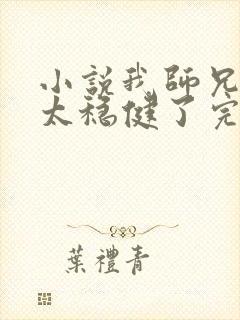 小說我師兄
太穩健了完
葉禮青